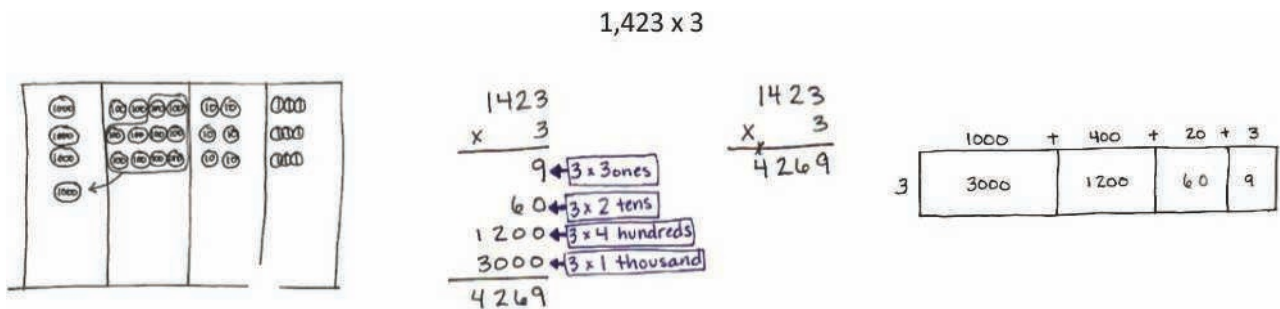 1,423 x 3
1000 100 100 100 100 10 10 1 1 1
1000 100 100 100 100 10 10 1 1 1
1000 100 100 100 100 10 10 1 1 1
1000
1423
x 3
9 3 x 3 ones
60 3 x 2 tens
1200 3 x 4 hundreds
3000 3 x 1 thousand
4269
1423
x 3
4269
1000 + 400 + 20 + 3
3 3000 1200 60 9